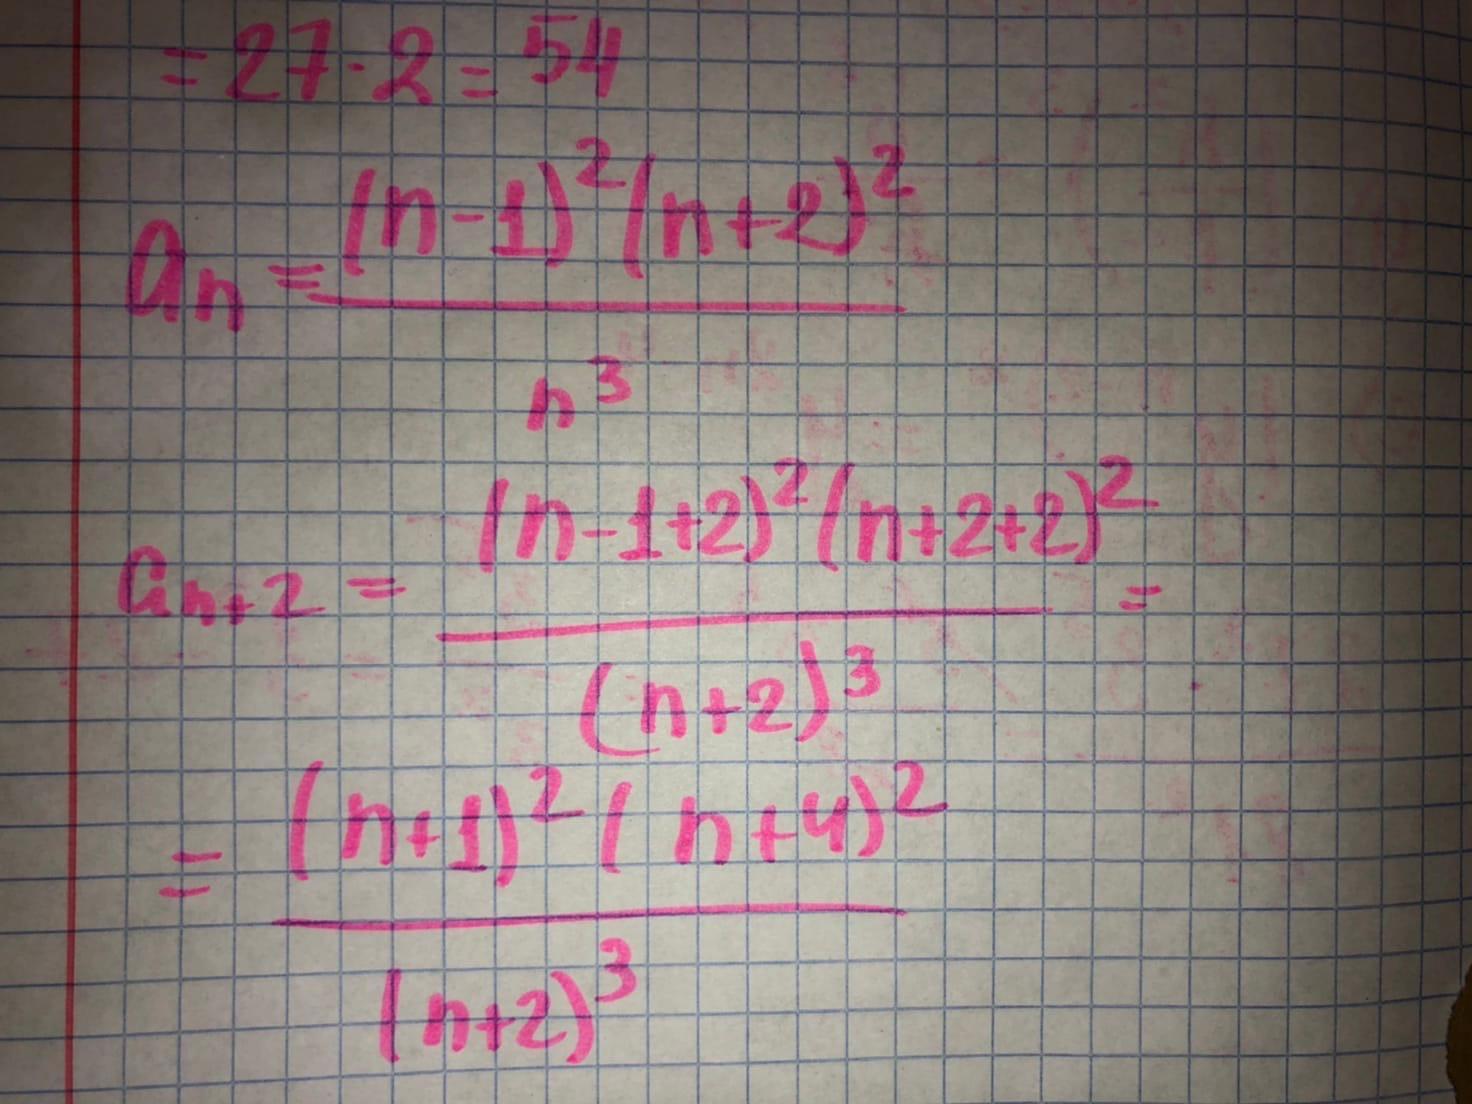 = 27 · 2 = 54
aₙ = (n-1)²(n+2)² / n³
aₙ₊₂ = (n-1+2)²(n+2+2)² / (n+2)³ =
= (n+1)²(n+4)² / (n+2)³